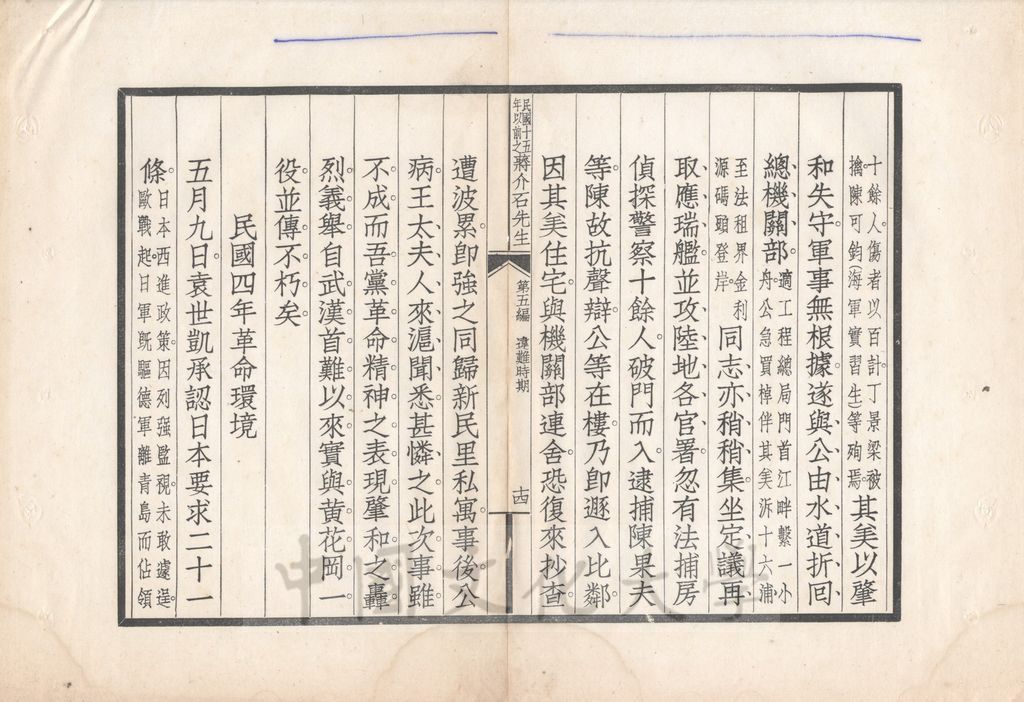 十餘人。傷者以百計、丁景梁被
擒、陳可鈞海軍實習生等殉焉。
其美以肇
和失守、軍事無根據、遂與公由水道折回
總機關部、
適工程總局門首江畔繫一小
舟、公急買棹伴其美泝十六浦、
至法租界金利
源碼頭登岸。
同志亦稍稍集、坐定議再
取應瑞艦、並攻陸地各官署、忽有法捕房
偵探警察十餘人、破門而入、逮捕陳果夫
等。陳故抗聲辯、公等在樓、乃卽遯入比鄰。
因其美住宅與機關部連舍、恐復來抄查
民國十五
年以前之
蔣介石先生
第五編
遘難時期
十四
遭波累。卽強之同歸新民里私寓。事後公
病、王太夫人來滬、聞悉甚憐之、此次事雖
不成、而吾黨革命精神之表現、肇和之轟
烈義舉、自武漢首難以來、實與黃花岡一
役、並傳不朽矣。
民國四年革命環境
五月九日、袁世凱承認日本要求二十一
條。
日本西進政策、因列强監視、未敢遽逞。
歐戰起、日軍旣驅德軍離青島而佔領
中國文化大學